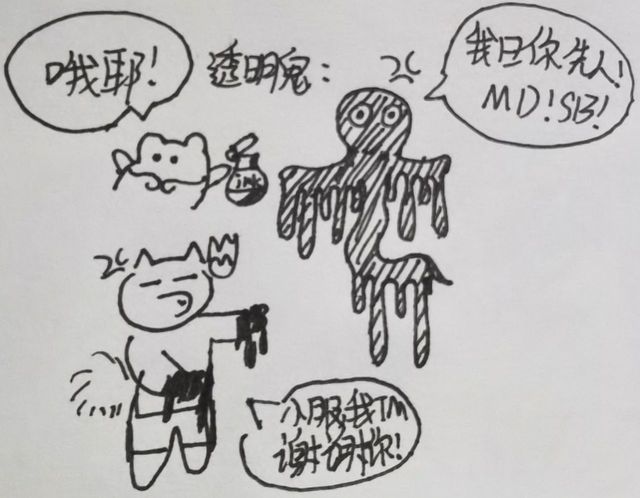 哦耶!
透明鬼:
我日你先人!
MD!SB!
ink
小服我TM
谢谢你!